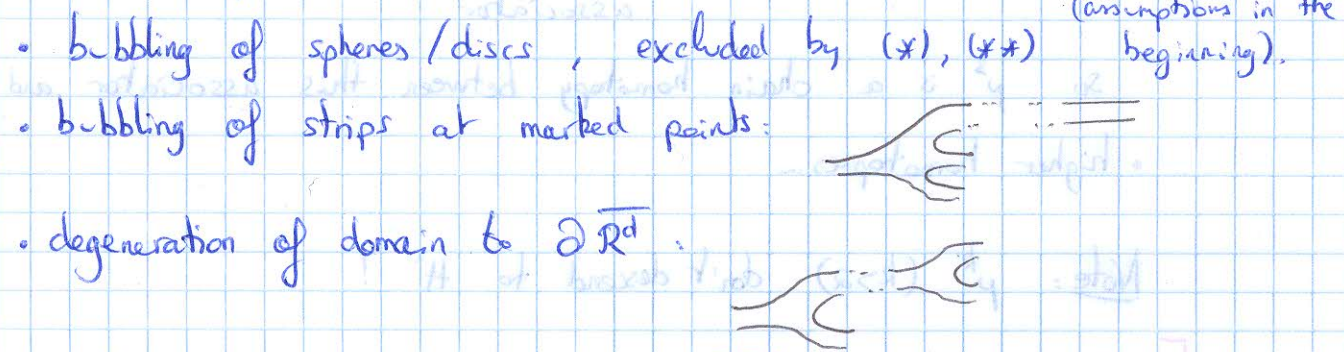 (assumptions in the
• bubbling of spheres/discs, excluded by (*), (**) beginning).
• bubbling of strips at marked points:
• degeneration of domain to ∂R̅ᵈ: